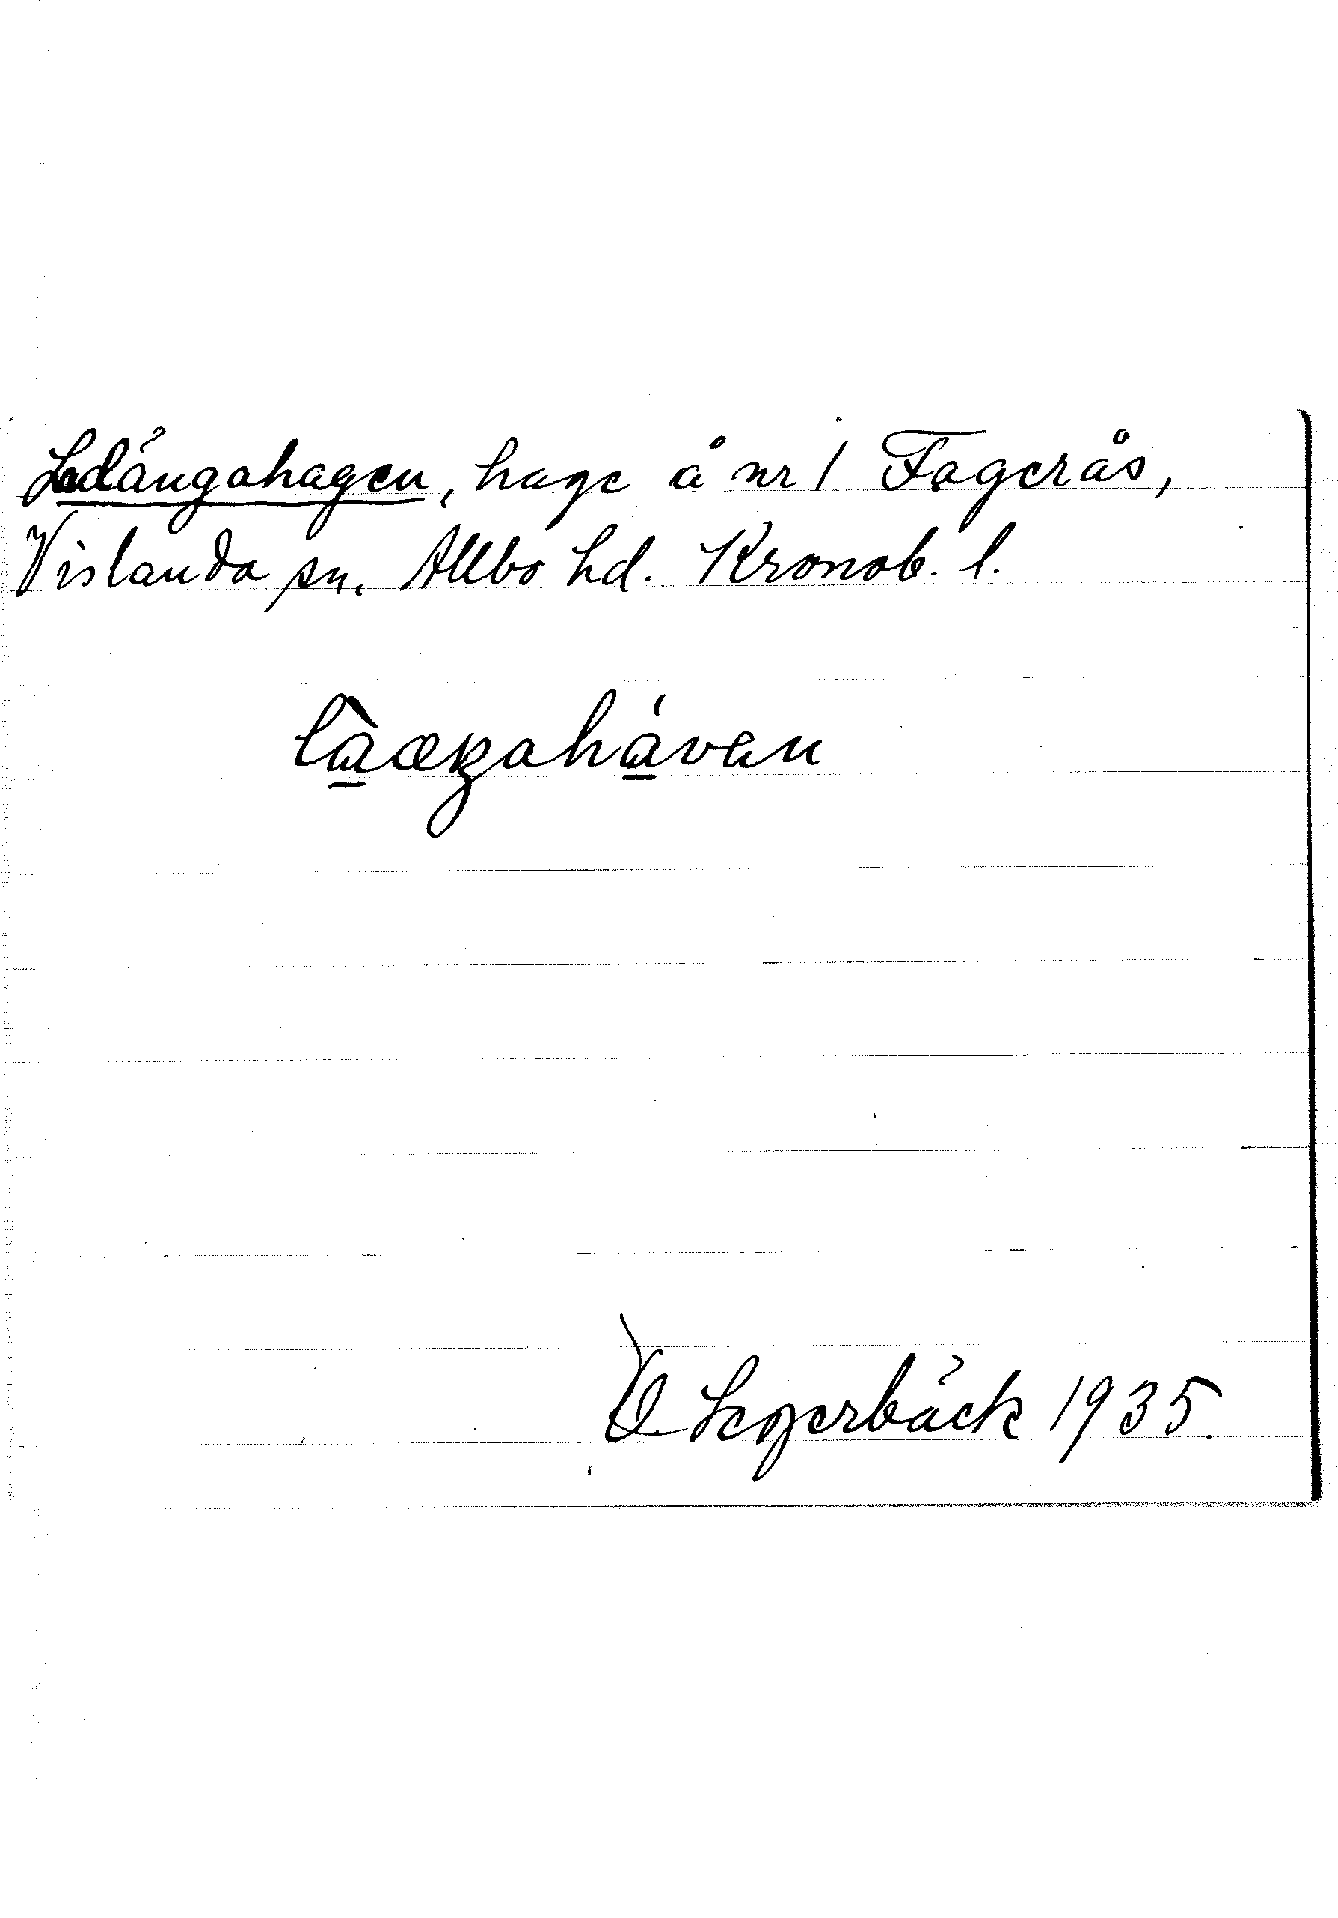 Ladängahagen, hage å nr 1 Fagerås,
Vislanda sn. Allbo hd. Kronob. l.
O. Legerbäck 1935.